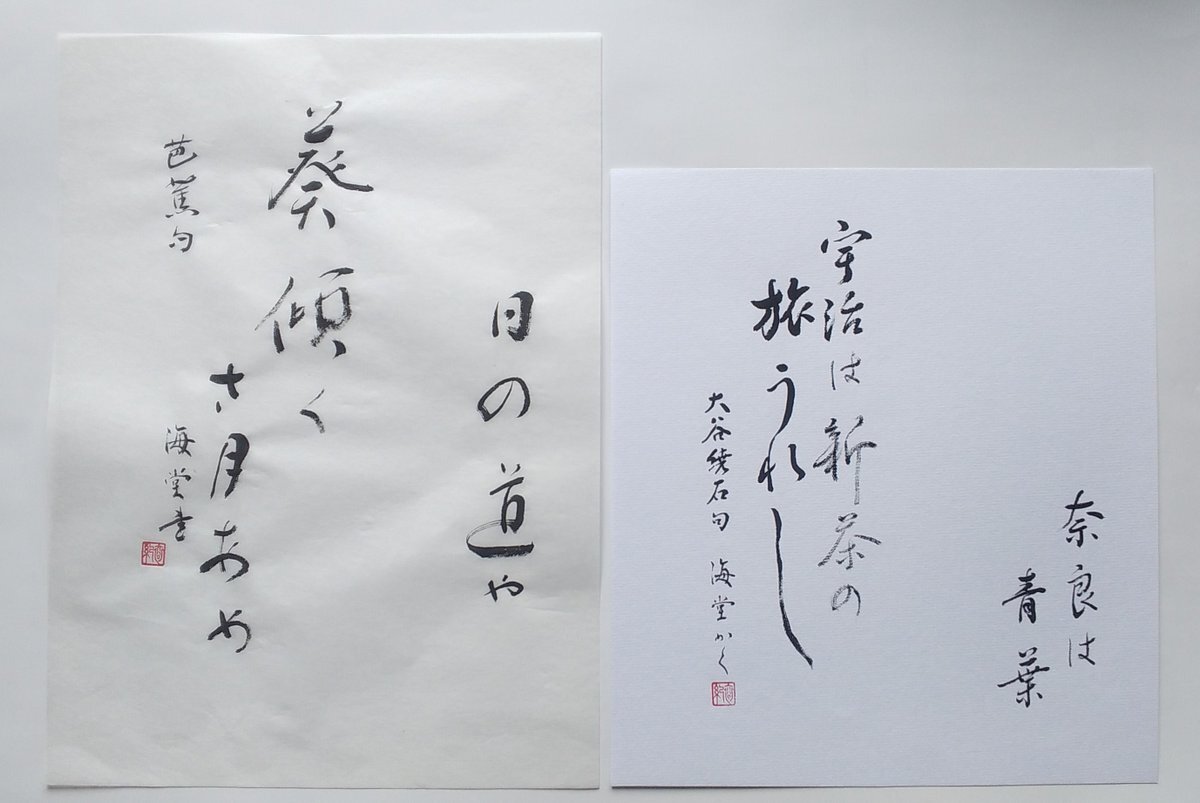 奈良は
青葉
宇治は新茶の
旅うれし
大谷繞石句 海堂かく
日の道や
葵傾く
さ月あめ
芭蕉句
海堂書